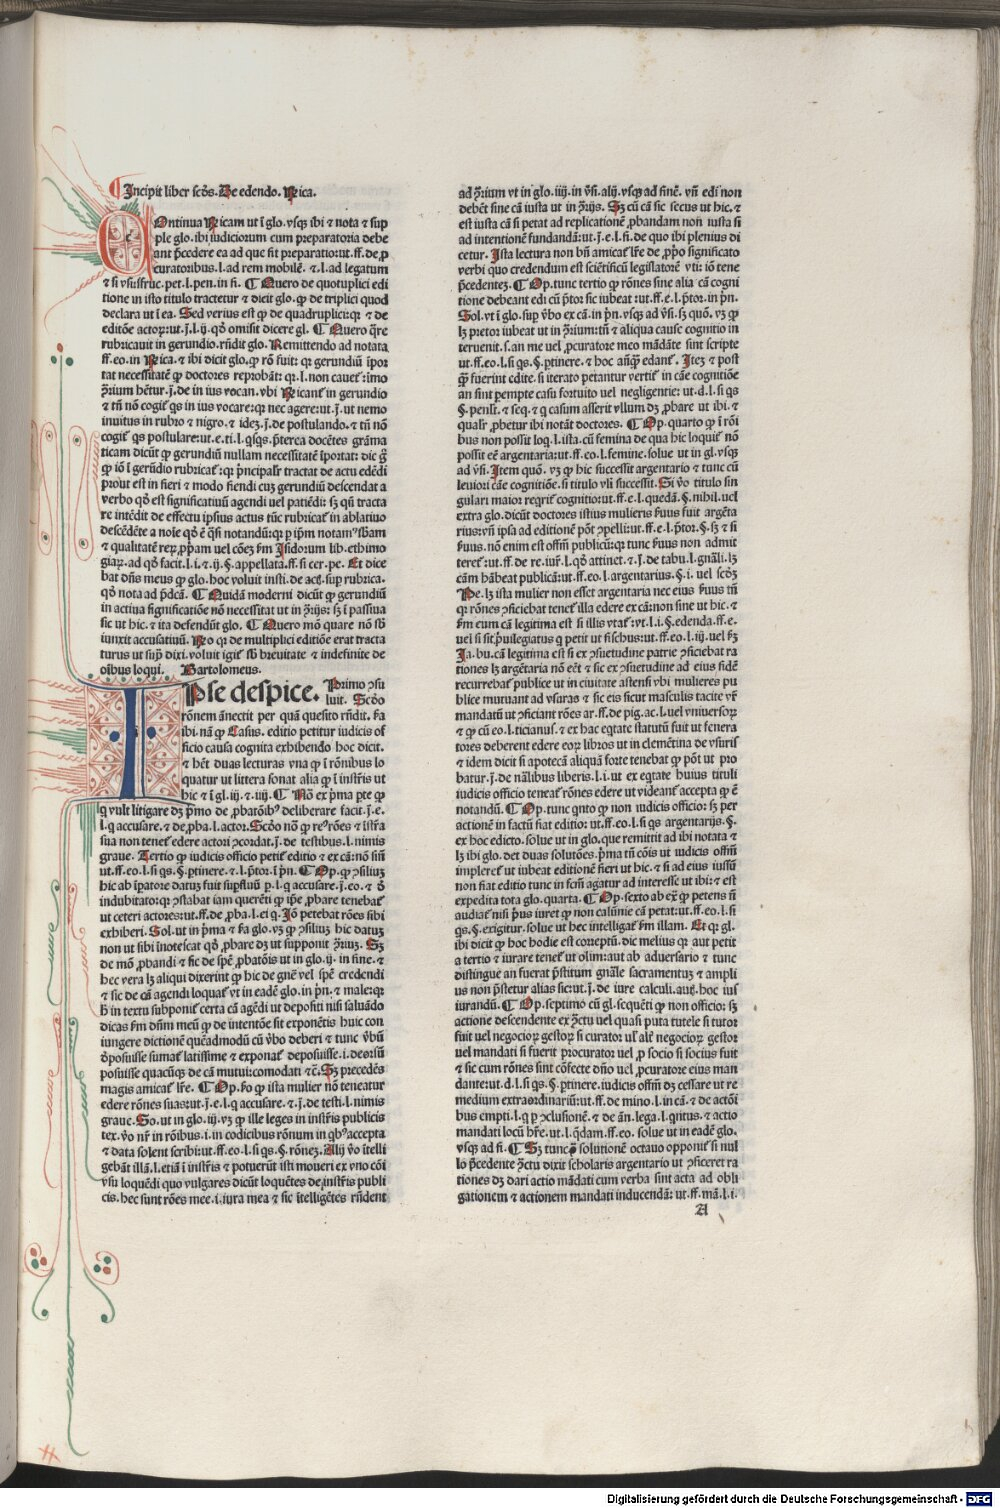 Incipit liber scđs. De edendo. Rica.
Ontinua Ricam ut ĩ glo. vsqꝫ ibi ⁊ nota ⁊ sup
ple glo. ibi iudiciorum cum preparatoria debe
ant p̃cedere ea ad que fit preparatio: ut. ff. de. ꝓ
curatoribus. l. ad rem mobilẽ. ⁊ l. ad legatum
⁊ si vsusfruc. pet. l. pen. in fi. ¶ Quero de quotuplici edi
tione in isto titulo tractetur ⁊ dicit glo. ꝙ de triplici quod
declara ut ĩ ea. Sed verius est ꝙ de quadruplici: qꝛ ⁊ de
editõe actoꝝ: ut. j. l. ij. qđ omisit dicere gl. ¶ Quero q̃re
rubricauit in gerundio. rñdit glo. Remittendo ad notata
ff. eo. in Rica. ⁊ ibi dicit glo. ꝙ rõ fuit: qꝛ gerundiũ ĩpor
tat necessitatẽ ꝙ doctores reprobãt: qꝛ. l. non cauet᷑: imo
ꝯ̃rium hẽtur. j. de in ius vocan. vbi Ricant᷑ in gerundio
⁊ tñ nõ cogit᷑ qs in ius vocare: qꝛ nec agere: ut. j. ut nemo
inuitus in rubro ⁊ nigro. ⁊ ideꝫ. j. de postulando. ⁊ tñ nõ
cogit᷑ qs postulare: ut. e. ti. l. qsqs. p̃terca docẽtes grãma
ticam dicũt ꝙ gerundiũ nullam necessitatẽ ĩportat: dic g̃
ꝙ iõ ĩ gerũdio rubricat᷑: qꝛ p̃ncipalr̃ tractat de actu edẽdi
prout est in fieri ⁊ modo fiendi cuꝫ gerundiũ descendat a
verbo qđ est significatiuũ agendi uel patiẽdi: sꝫ qñ tracta
re intẽdit de effectu ipsius actus tũc rubricat᷑ in ablatiuo
descẽdẽte a noĩe qđ ẽ q̃si notandũ: qꝛ ꝑ ipm̃ notam᷑ sb̃am
⁊ qualitatẽ reꝝ ꝓp̃am vel cõeꝫ ẜm Isidorum lib. ethimo
giaꝝ. ad qđ facit. l. i. ⁊ ij. §. appellata. ff. si cer. pe. Et dice
bat dñs meus ꝙ glo. hoc voluit insti. de act. sup rubrica.
qđ nota ad p̃dcã. ¶ Quidã moderni dicũt ꝙ gerundiũ
in actiua significatiõe nõ necessitat ut in ꝯ̃rijs: sꝫ ĩ passiua
sic ut hic. ⁊ ita defendũt glo. ¶ Quero mõ quare nõ sb̃
iunxit accusatiuũ. Rõ qꝛ de multiplici editiõe erat tracta
turus ut supꝰ dixi. voluit igit᷑ sb̃ breuitate ⁊ indefinite de
oĩbus loqui. Bartolomeus.
IPse despice. Primo ꝯsu
luit. Scđo
rõnem ãnectit per quã quesito rñdit. ẜa
ibi. nã ꝙ Casus. editio petitur iudicis of
ficio causa cognita exhibendo hoc dicit.
⁊ hẽt duas lecturas vna ꝙ ĩ rõnibus lo
quatur ut littera sonat alia ꝙ ĩ instr̃is ut
hic ⁊ ĩ gl. iij. ⁊ iiij. ¶ Nõ ex p̃ma pte ꝙ
q vult litigare dꝫ p̃mo de ꝓbatõibꝰ deliberare facit. j. e.
l. q accusare. ⁊ de ꝓba. l. actor. Scđo nõ ꝙ reꝰ rões ⁊ istr̃a
sua non tenet᷑ edere actori ꝯcordat. j. de testibus. l. nimis
graue. Tertio ꝙ iudicis officio petit᷑ editio ⁊ ex cã: nõ sim̃
ut. ff. eo. l. si qs. §. ꝑtinere. ⁊ l. p̃tor. ĩ p̃n. ¶ Op. ꝙ ꝯsiliuꝫ
hic ab ĩpatore datuꝫ fuit supfluũ ꝑ. l. q accusare. j. eo. ⁊ ð
indubitato: qꝛ ꝯstabat iam querẽti ꝙ ipẽ, ꝓbare tenebat᷑
ut ceteri actores: ut. ff. de. ꝓba. l. ei q. Iõ petebat rões sibi
exhiberi. Sol. ut in p̃ma ⁊ ẜa glo. vꝫ ꝙ ꝯsiliuꝫ hic datuꝫ
non ut sibi inotescat qđ ꝓbare dꝫ ut supponit ꝯ̃riuꝫ. Sꝫ
de mõ ꝓbandi ⁊ sic de spẽ ꝓbatõis ut in glo. ij. in fine. ⁊
hec vera lꝫ aliqui dixerint ꝙ hic de gñe vel spẽ credendi
⁊ sic de cã agendi loquat᷑ vt in eadẽ glo. in p̃n. ⁊ male: qꝛ
h̃ in textu supponit᷑ certa cã agẽdi ut depositi nisi saluãdo
dicas ẜm dñm meũ ꝙ de intentõe sit exponẽtis huic con
iungere dictionẽ quẽadmodũ cũ v̓bo deberi ⁊ tunc v̓bũ
ð̓posuisse sumat᷑ latissime ⁊ exponat᷑ deposuisse. i. deorsũ
posuisse quacũqꝫ de cã mutui: comodati ⁊ c̃. Sꝫ precedẽs
magis amicat᷑ lr̃e. ¶ Op. ẜo ꝙ ista mulier nõ teneatur
edere rões suas: ut. j. e. l. q accusare. ⁊. j. de testi. l. nimis
graue. So. ut in glo. iij. vꝫ ꝙ ille leges in instr̃is publicis
tex. v̓o nr̃ in rõibus. i. in codicibus rõnum in qbꝰ accepta
⁊ data solent scribi: ut. ff. eo. l. si qs. §. rõneꝫ. Alij v̓o ĩtelli
gebãt illã. l. etiã ĩ instr̃is ⁊ potuerũt isti moueri ex vno cõi
vsu loquẽdi quo vulgares dicũt loquẽtes de instr̃is publi
cis. hec sunt rões mee. i. iura mea ⁊ sic ĩtelligẽtes rñdent
ad ꝯ̃rium vt in glo. iiij. in v̓si. alij. vsqꝫ ad finẽ. vñ edi non
debẽt sine cã iusta ut in ꝯ̃rijs. Sꝫ cũ cã sic secus ut hic. ⁊
est iusta cã si petat᷑ ad replicationẽ ꝓbandam non iusta si
ad intentionẽ fundandã: ut. j. e. l. fi. de quo ibi plenius di
cetur. Ista lectura non bñ amicat᷑ lr̃e de ꝓprio significato
verbi quo credendum est sciẽtificũ legislatorẽ vti: iõ tene
p̃cedenteꝫ. ¶ Op. tunc tertio ꝙ rões sine alia cã cogni
tione debeant edi cũ p̃tor sic iubeat: ut. ff. e. l. p̃tor. in p̃n.
Sol. vt ĩ glo. sup v̓bo ex cã. in p̃n. vsqꝫ ad v̓si. sꝫ quõ. vꝫ ꝙ
lꝫ pretor iubeat ut in ꝯ̃rium: tñ ⁊ aliqua cause cognitio in
teruenit. s. an me uel ꝓcuratore meo mãdãte sint scripte
ut. ff. eo. l. si qs. §. ptinere. ⁊ hoc añqꝫ edant᷑. Iteꝫ ⁊ post
qꝫ fuerint edite. si iterato petantur vertit᷑ in cãe cognitiõe
an sint pempte casu fortuito uel negligentie: ut. d. l. si qs
§. penl't. ⁊ seq. ⁊ q casum asserit vllum dꝫ ꝓbare ut ibi. ⁊
qualr̃ ꝓbetur ibi notãt doctores. ¶ Op. quarto ꝙ ĩ rõi
bus non possit loq. l. ista. cũ femina de qua hic loquit᷑ nõ
possit eẽ argentaria: ut. ff. eo. l. femine. solue ut in gl. vsqꝫ
ad v̓si. Item quõ. vꝫ ꝙ hic successit argentario ⁊ tunc cũ
leuiori cãe cognitiõe. si titulo vli successit. Si v̓o titulo sin
gulari maior reqrit᷑ cognitio: ut. ff. e. l. quedã. §. nihil. uel
extra glo. dicũt doctores istius mulieris ẜuus fuit argẽta
rius: vñ ipsa ad editionẽ põt ꝯpelli: ut. ff. e. l. p̃tor. §. sꝫ ⁊ si
ẜuus. nõ enim est offm̃ publicũ: qꝛ tunc ẜuus non admit
teret᷑: ut. ff. de re. iur̃. l. qđ attinet. ⁊. j. de tabu. l. gñali. lꝫ
cãm hãbeat publicã: ut. ff. eo. l. argentarius. §. i. uel scđꝫ
Pe. lꝫ ista mulier non esset argentaria nec eius ẜuus tñ
qꝛ rões ꝯficiebat tenet᷑ illa edere ex cã: non sine ut hic. ⁊
ẜm eum cã legitima est si illis vtat᷑: vt. l. i. §. edenda. ff. e.
uel si sit p̃uilegiatus q petit ut fischus: ut. ff. eo. l. iij. uel ẜꝫ
Ja. bu. cã legitima est si ex ꝯsuetudine patrie ꝯficiebat ra
tiones lꝫ argẽtaria nõ eẽt ⁊ sic ex ꝯsuetudine ad eius fidẽ
recurrebat᷑ publice ut in ciuitate astensi vbi mulieres pu
blice mutuant ad vsuras ⁊ sic eis sicut masculis tacite vr̃
mandatũ ut ꝯficiant rões ar. ff. de pig. ac. l. uel vniuersoꝝ
⁊ ꝙ cũ eo. l. ticianus. ⁊ ex hac eqtate statutũ fuit ut fenera
tores deberent edere eoꝝ libros ut in clemẽtina de vsuris
⁊ idem dicit si apotecã aliquã forte tenebat ꝙ põt ut pro
batur. j. de nãlibus liberis. l. i. ut ex eqtate huius tituli
iudicis officio teneat᷑ rões edere ut videant᷑ accepta ꝙ ẽ
notandũ. ¶ Op. tunc qnto ꝙ non iudicis officio: sꝫ per
actionẽ in factũ fiat editio: ut. ff. eo. l. si qs argentarijs. §.
ex hoc edicto. solue ut in glo. que remittit ad ibi notata ⁊
lꝫ ibi glo. det duas solutões. p̃ma tñ cõis ut iudicis offm̃
impleret᷑ ut iubeat editionẽ fieri ut hic. ⁊ si ad eius iussũ
non fiat editio tunc in fcm̃ agatur ad interesse ut ibi: ⁊ est
expedita tota glo. quarta. ¶ Op. sexto ab eꝰ ꝙ petens ñ
audiat᷑ nisi p̃us iuret ꝙ non calũnie cã petat: ut. ff. eo. l. si
qs. §. exigitur. solue ut hec intelligat᷑ ẜm illam. Et qꝛ gl.
ibi dicit ꝙ hoc hodie est correptũ. dic melius qꝛ aut petit᷑
a tertio ⁊ iurare tenet᷑ ut olim: aut ab aduersario ⁊ tunc
distingue an fuerat p̃stitum gñale sacramentuꝫ ⁊ ampli
us non p̃stetur alias sic: ut. j. de iure calculi. autꝫ. hoc ius
iurandũ. ¶ Op. septimo cũ gl. sequẽti ꝙ non officio: sꝫ
actione descendente ex ꝯ̃ctu vel quasi puta tutele si tutor
fuit vel negocioꝝ gestoꝝ si curator ul' alr̃ negocioꝝ gestor
uel mandati si fuerit procurator vel ꝓ socio si socius fuit
⁊ sic cum rões sint cõfecte dño vel ꝓcuratore eius man
dante: ut. d. l. si qs. §. ptinere. iudicis offm̃ dꝫ cessare ut re
medium extraordinariũ: ut. ff. de mino. l. in cã. ⁊ de actõi
bus empti. l. q ꝑ ꝯclusionẽ. ⁊ de ãn. lega. l. qnitus. ⁊ actio
mandati locũ hr̃e. ut. l. qdam. ff. eo. solue ut in eadẽ glo.
vsqꝫ ad fi. ¶ Sꝫ tunc ꝯ̃ solutionẽ octauo opponit᷑ si nul
lo p̃cedente ꝯ̃ctu dixit scholaris argentario ut ꝯficeret ra
tiones dꝫ dari actio mãdati cum verba sint acta ad obli
gationem ⁊ actionem mandati inducendã: ut. ff. mã. l. i.
A
Digitalisierung gefördert durch die Deutsche Forschungsgemeinschaft - DFG